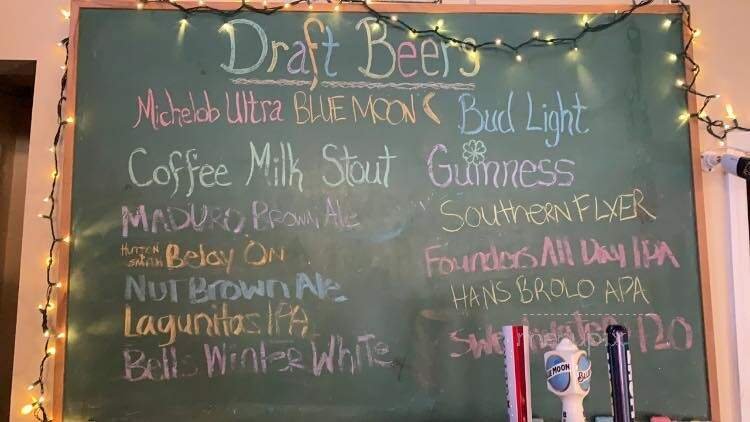 Draft Beers
Michelob Ultra
BLUE MOON
Bud Light
Coffee Milk Stout
Guinness
MADURO BROWN Ale
SOUTHERN FLYER
HUTTON SMITH
Belay ON
Founders All Day IPA
Nut Brown Ale
HANS BROLO APA
Lagunitas IPA
120
Bells Winter White
BLUE MOON